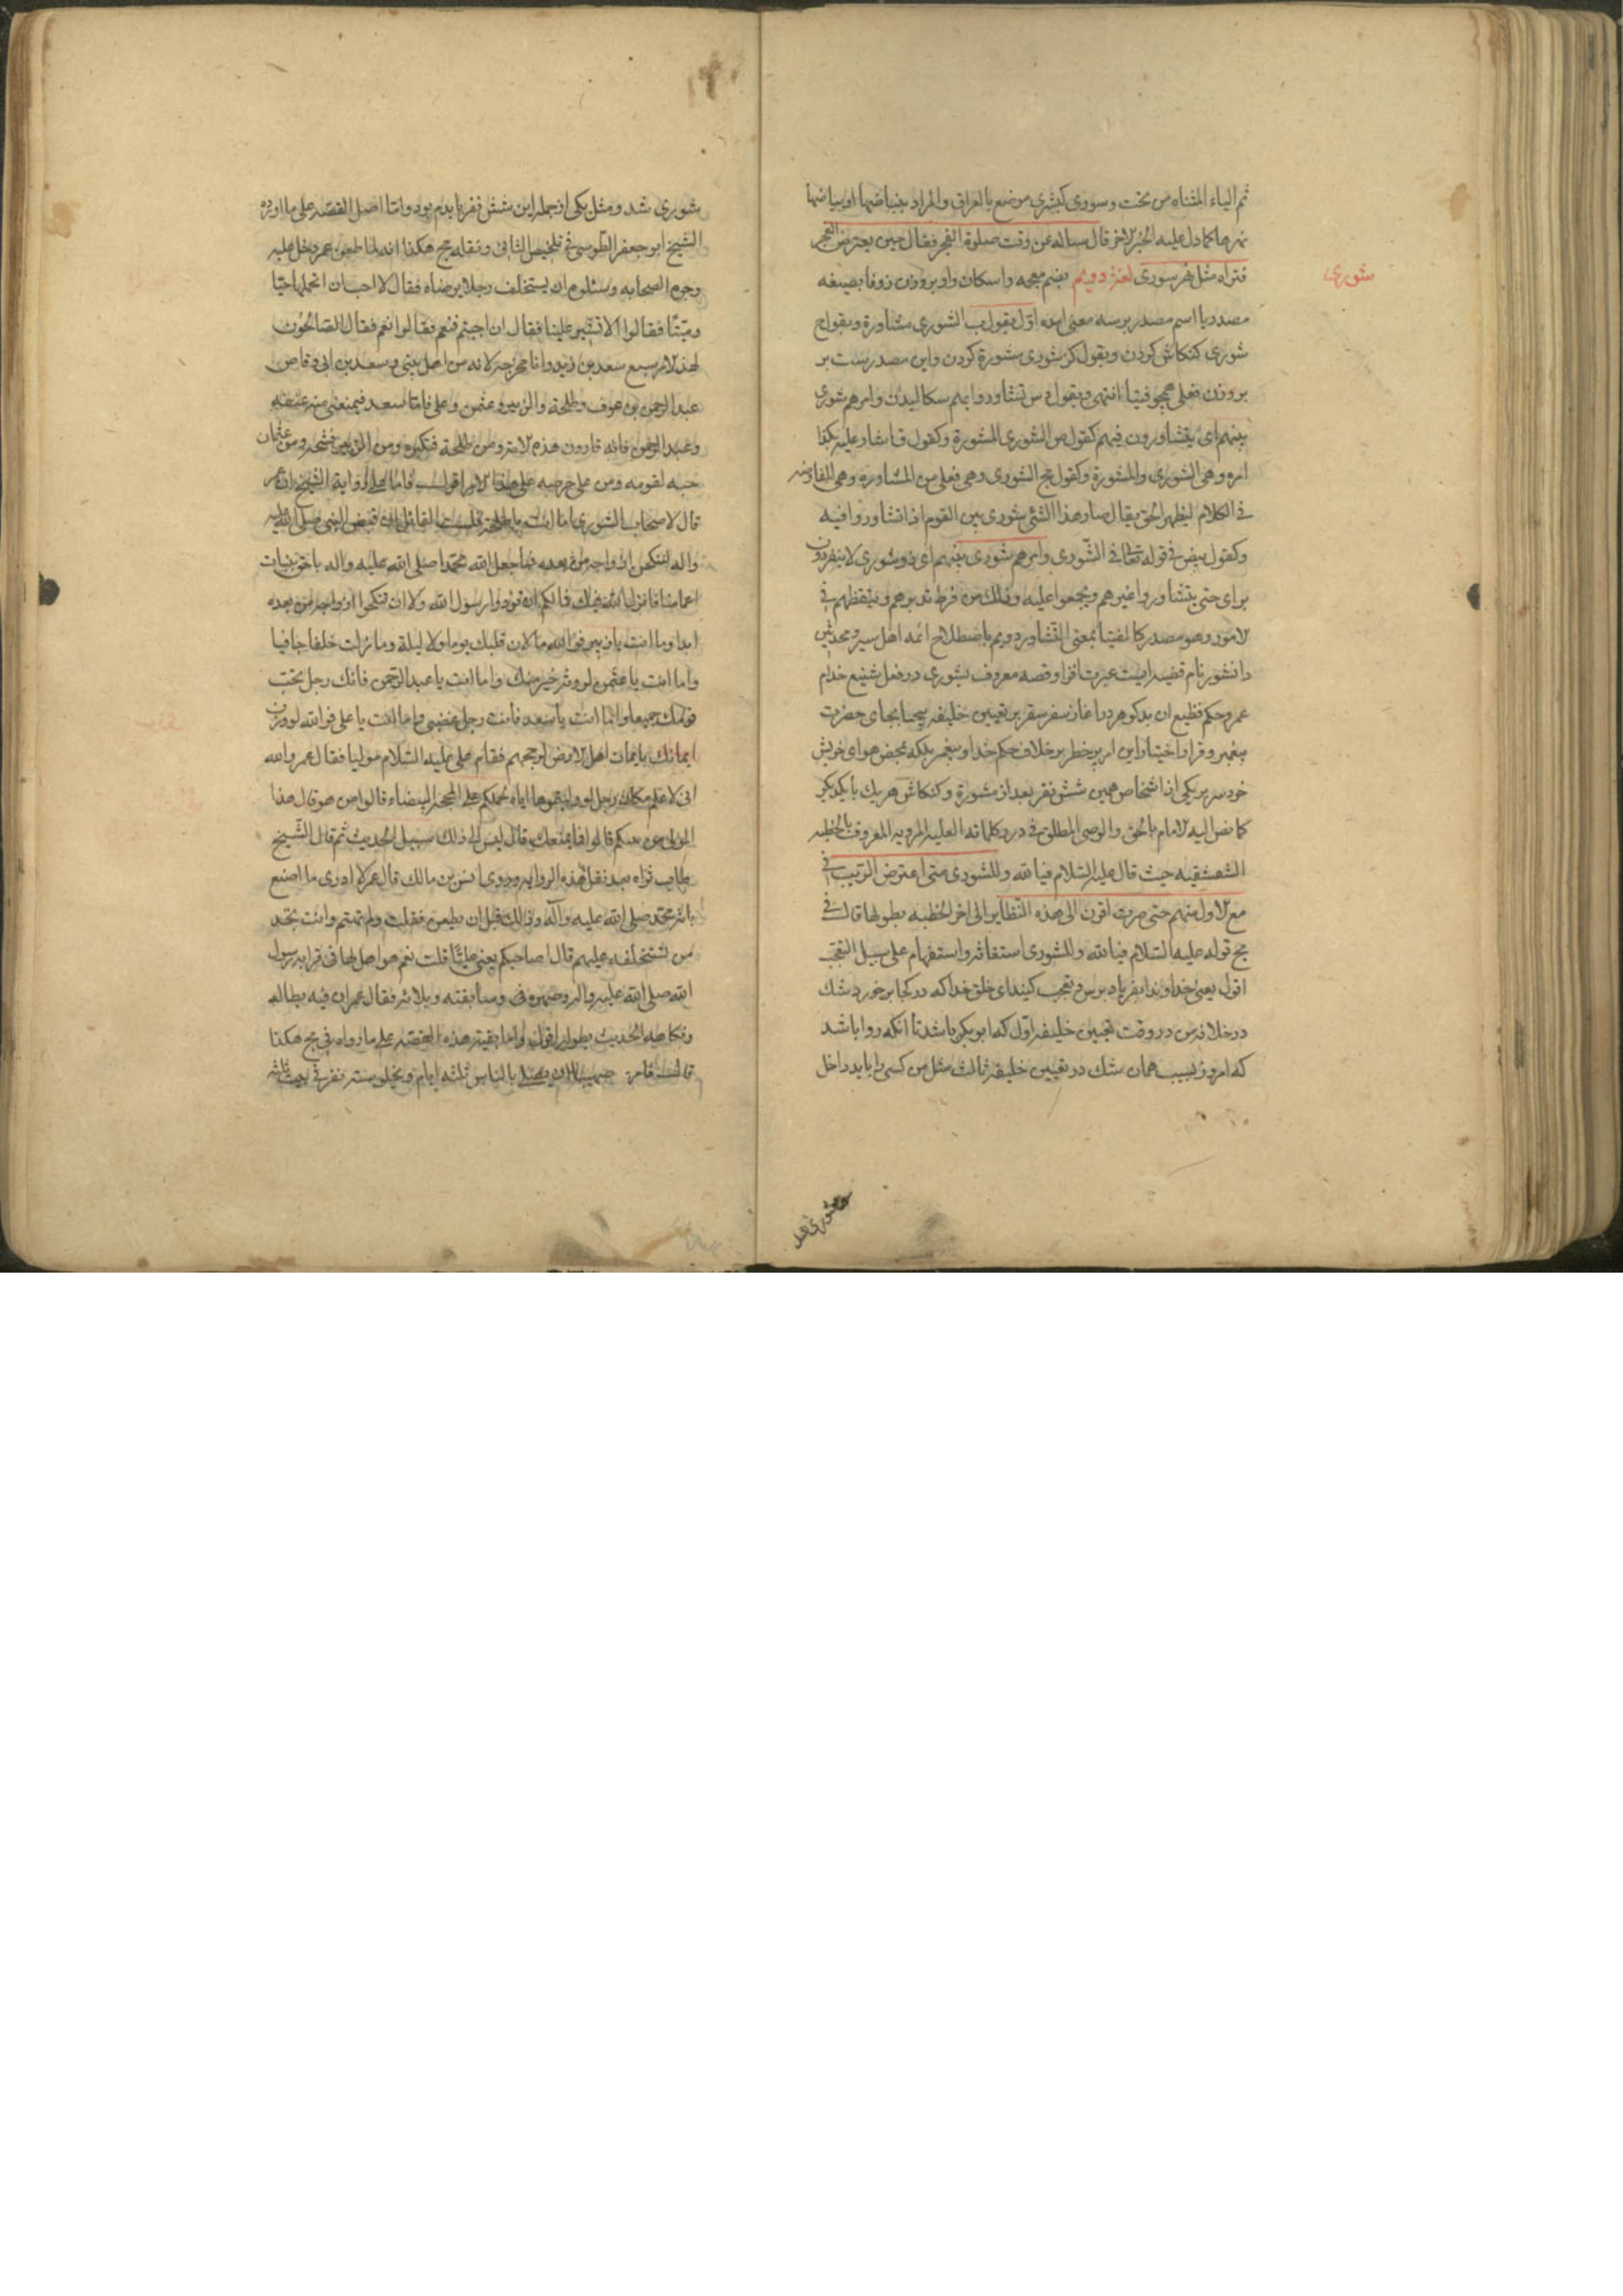 ثم الیاء المثناه من تحت و سوری کبشری موضع بالعراق والمراد ببیاضها او بیاضها
نهرها کما دل علیه الخبر الاخر قال سالته عن وقت صلوة الفجر فقال حین یعترض الفجر
فتراه مثل نهر سوری لغة دویم بضم معجمه و اسکان واو بر وزن زوفا بصیغه
شوری
مصدر یا اسم مصدر بر سه معنی امده اول یقول ب الشوری مشاورة و یقول ج
شوری کنکاش کردن و یقول کز شوری مشورة کردن و این مصدریست بر
بر وزن فعلی همچو فتیا انتهی و یقول دس تشاور وا بهم سکالیدن و امرهم شوری
بینهم ای یتشاورون فیهم کقول ص الشوری المشورة و کقول ق اشار علیه بکذا
امره و هی الشوری والمشورة و کقول مج الشوری وهی فعلی من المشاورة وهی المفاوضه
فی الکلام لیظهر الحق یقال صار هذا الشئ شوری بین القوم اذا تشاوروا فیه
و کقول بیض فی قوله تعالی فی الشوری و امرهم شوری بینهم ای ذو شوری لا ینفردون
برای حتی یتشاوروا غیرهم و یجمعوا علیه و ذلک من فرط تدبرهم و تیقظهم فی
الامور وهو مصدر کالفتیا بمعنی التشاور دویم باصطلاح ائمه اهل سیر و محدثین
دانشور نام قضیه ایست عبرت افزا و قصه معروف بشوری در فعل شنیع خدام
عمر و حکم فظیع ان بدکوهر در اغاز سفر سقر بر تعیین خلیفه بیجا بجای حضرت
پیغمبر و قرار اختیار این امر پر خطر بر خلاف حکم خدا و پیغمبر بلکه بمحض هوای خویش
خود سر بر یکی از اشخاص همین شش نفر بعد از مشورة و کنکاش هر یک با یکدیگر
کما نص الیه الامام بالحق والوصی المطلق فی درر کلماته العلیه المرویه المعروف بالخطبه
الشقشقیه حیث قال علیه السلام فیا لله و للشوری متی اعترض الریب فی
مع الاول منهم حتی صرت اقرن الی هذه النظایر الی اخر الخطبه بطولها قال فی
مج قوله علیه السلام فیا لله و للشوری استغاثه و استفهام علی سبیل التعجب
اقول یعنی خداوندا بفریاد برس و تعجب کنید ای خلق خدا که در کجا بر خورد شک
در خلافت من در وقت تعیین خلیفه اول که ابو بکر باشد تا انکه روا باشد
که امروز بسبب همان شک در تعیین خلیفه ثالث مثل من کسی را باید داخل
شوری شد و مثل یکی از جمله این شش نفر باید م بود و اما اصل القصه علی ما اورده
الشیخ ابو جعفر الطوسی فی تلخیص الشافی و نقله مج هکذا انه لما طعن عمر دخل علیه
وجوه الصحابه و سئلوه ان یستخلف رجلا یرضاه فقال لا احب ان اتحملها حیا
و میتا فقالوا الا تشیر علینا فقال ان احببتم فنعم فقالوا نعم فقال الصالحون
لهذا الامر سبع سعد بن زید و انا مخرجه لانه من اهل بیتی و سعد بن ابی وقاص
عبد الرحمن بن عوف و طلحة والزبیر و عثمن و علی فاما سعد فیمنعنی منه عنفه
و عبد الرحمن فانه قارون هذه الامة و من طلحة فتکبره و من الزبیر فشحه و من عثمان
حبه لقومه و من علی حرصه علی هذا الامر اقول فاما علی روایة الشیخ ان عمر
قال لاصحاب الشوری اما انت یا طلحة فلست القائل ان قبض النبی صلی الله علیه
واله لننکحن ازواجه من بعده فما جعل الله محمدا صلی الله علیه و اله باحق ببنات
اعمامنا فانزل الله فیک ما کان لکم ان توذوا رسول الله ولا ان تنکحوا ازواجه من بعده
ابدا و ما انت یا زبیر فوالله ما لان قلبک یوما ولا لیلة و ما زلت جلفا جافیا
و اما انت یا عثمن لروثة خیر منک و اما انت یا عبد الرحمن فانک رجل تحب
قومک جمیعا و اما انت یا سعد فانت رجل عصبی و اما انت یا علی فوالله لو وزن
ایمانک بایمان اهل الارض لرجحهم فقام علی علیه السلام مولیا فقال عمر والله
انی لاعلم مکان رجل لو ولیتموها ایاه لحملکم علی المحجة البیضاء قالوا من هو قال هذا
المولی من بینکم قالوا فما یمنعک قال لیس الی ذلک سبیل الحدیث ثم قال الشیخ
طاب ثراه بعد نقل هذه الروایه و روی انس بن مالک قال عمر لا ادری ما اصنع
بامة محمد صلی الله علیه و آله و ذلک قبل ان یطعن فقلت ولم تهتم و انت تجد
من تستخلفه علیهم قال اصاحبکم یعنی علیا قلت نعم هو اهل لها فی قرابه رسول
الله صلی الله علیه واله و صهره و سابقته و بلائه فقال عمر ان فیه بطاله
و فکاهه الحدیث بطوله اقول و اما بقیة هذه القصه علی ما رواه فی مج هکذا
قال فامر صهیبا ان یصلی بالناس ثلثه ایام و یخلو سته نفر فی بیت ثلثه